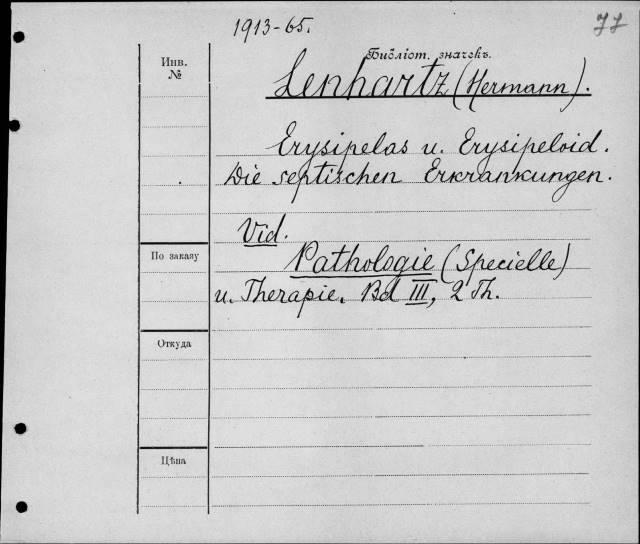 1913-65.
77
Инв.
№
Библіот. значекъ.
Lenhartz (Hermann).
Erysipelas u. Erysipeloid.
Die septischen Erkrankungen.
Vid.
Pathologie (Specielle)
u. Therapie. Bd III, 2 Th.
По заказу
Откуда
Цѣна